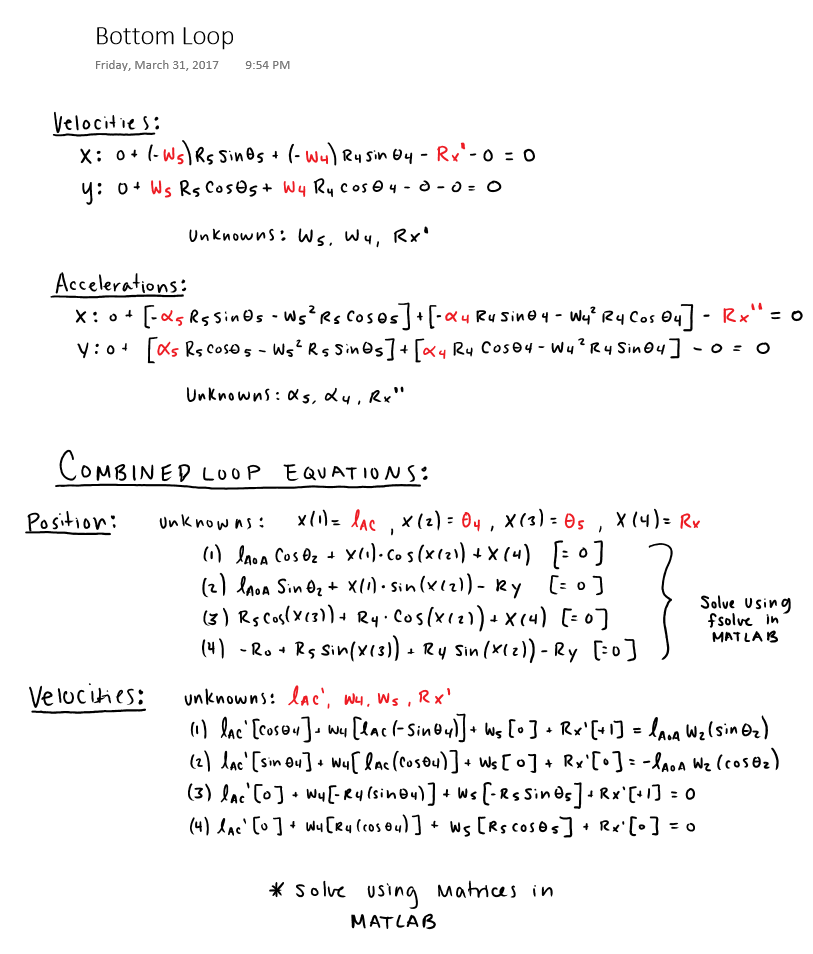 Bottom Loop
Friday, March 31, 2017 9:54 PM
Velocities:
X: 0 + (-W5) R5 Sinθ5 + (-W4) R4 sin θ4 - Rx' - 0 = 0
y: 0 + W5 R5 Cosθ5 + W4 R4 cos θ4 - 0 - 0 = 0
Unknowns: W5, W4, Rx'
Accelerations:
X: 0 + [-α5 R5 sinθ5 - W5² R5 Cosθ5] + [-α4 R4 sinθ4 - W4² R4 Cos θ4] - Rx'' = 0
Y: 0 + [α5 R5 cosθ5 - W5² R5 Sinθ5] + [α4 R4 Cosθ4 - W4² R4 Sinθ4] - 0 = 0
Unknowns: α5, α4, Rx''
COMBINED LOOP EQUATIONS:
Position: unknowns: X(1) = lAC, X(2) = θ4, X(3) = θ5, X(4) = Rx
(1) lAOA Cosθ2 + X(1)·Cos(X(2)) + X(4) [= 0]
(2) lAOA Sinθ2 + X(1)·sin(X(2)) - Ry [= 0]
(3) R5 Cos(X(3)) + R4·Cos(X(2)) + X(4) [= 0]
(4) -Ro + R5 Sin(X(3)) + R4 Sin(X(2)) - Ry [= 0]
Solve using
fsolve in
MATLAB
Velocities: unknowns: lAC', W4, W5, Rx'
(1) lAC' [cosθ4] + W4 [lAC (-Sinθ4)] + W5 [0] + Rx' [+1] = lAOA W2 (sinθ2)
(2) lAC' [sinθ4] + W4 [lAC (cosθ4)] + W5 [0] + Rx' [0] = -lAOA W2 (cosθ2)
(3) lAC' [0] + W4 [-R4 (sinθ4)] + W5 [-R5 Sinθ5] + Rx' [+1] = 0
(4) lAC' [0] + W4 [R4 (cosθ4)] + W5 [R5 cosθ5] + Rx' [0] = 0
* Solve using Matrices in
MATLAB